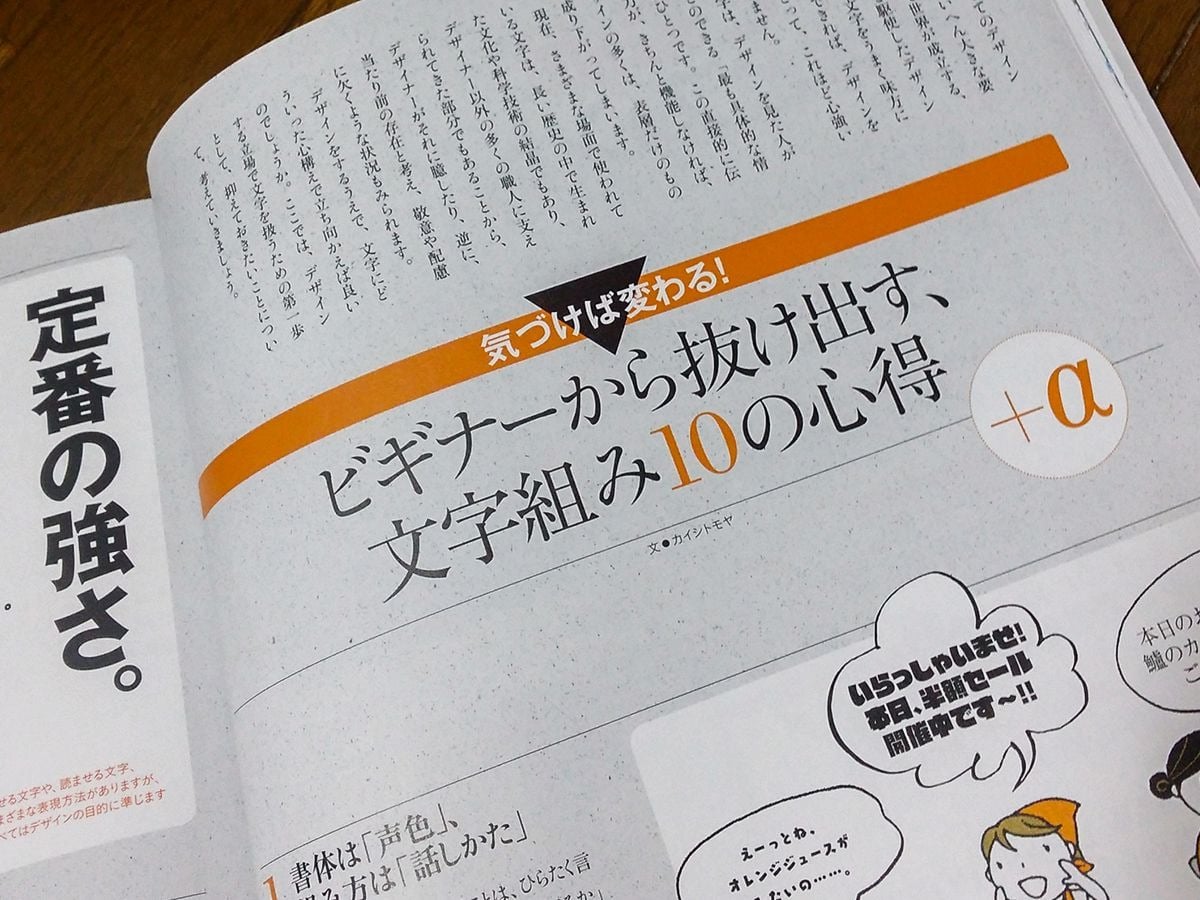 てのデザイン
いへん大きな要
世界が成立する、
駆使したデザイン
文字をうまく味方に
できれば、デザインを
とって、これほど心強い
ません。
字は、デザインを見た人が
このできる「最も具体的な情
ひとつです。この直接的に伝
きちんと機能しなければ、
インの多くは、表層だけのもの
成り下がってしまいます。
現在、さまざまな場面で使われて
いる文字は、長い歴史の中で生まれ
た文化や科学技術の結晶でもあり、
デザイナー以外の多くの職人に支え
られてきた部分でもあることから、
デザイナーがそれに臆したり、逆に、
当たり前の存在と考え、敬意や配慮
に欠くような状況もみられます。
デザインをするうえで、文字にど
ういった心構えで立ち向かえば良い
のでしょうか。ここでは、デザイン
する立場で文字を扱うための第一歩
として、抑えておきたいことについ
て、考えていきましょう。
気づけば変わる!
ビギナーから抜け出す、
文字組み10の心得
+α
文●カイシトモヤ
定番の強さ。
せる文字や、読ませる文字、
まざまな表現方法がありますが、
べてはデザインの目的に準じます
1
書体は「声色」、
方は「話しかた」
とは、ひらたく言
いらっしゃいませ!
本日、半額セール
開催中です〜!!
本日のお
鱸のカ
ご
えーっとね、
オレンジジュースが
したいの……。